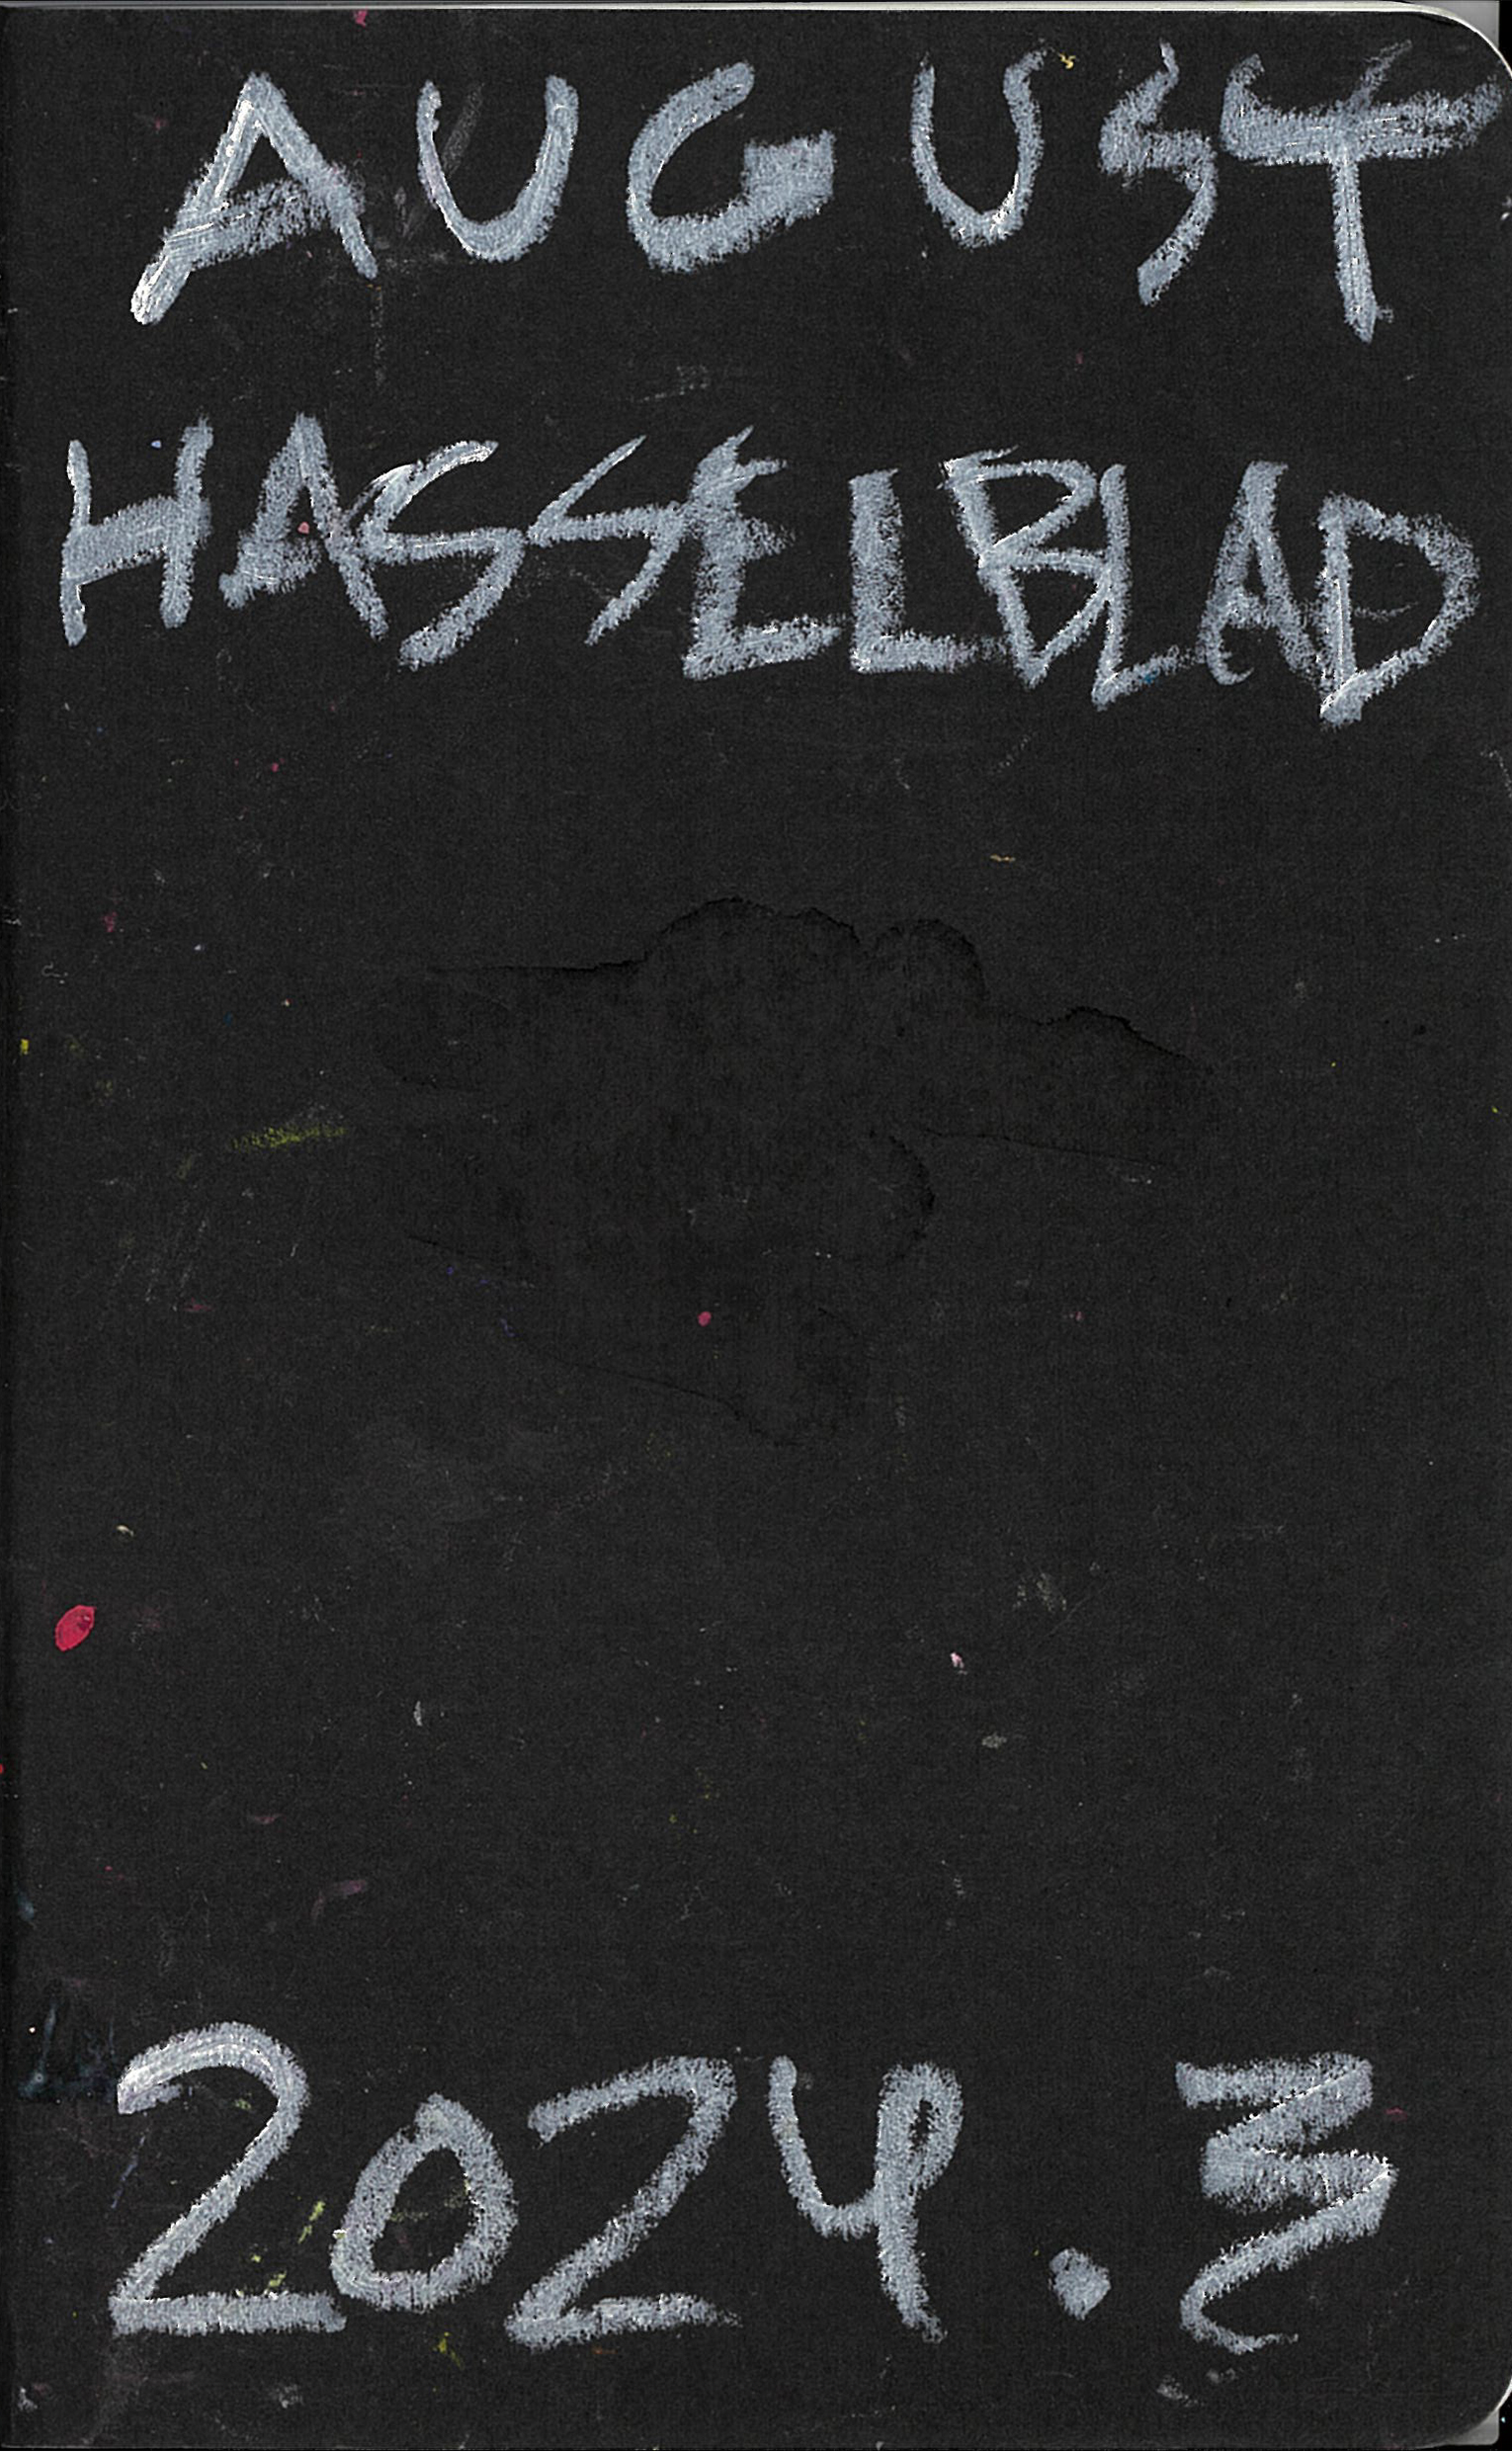 AUGUST
HASSELBLAD
2024.3